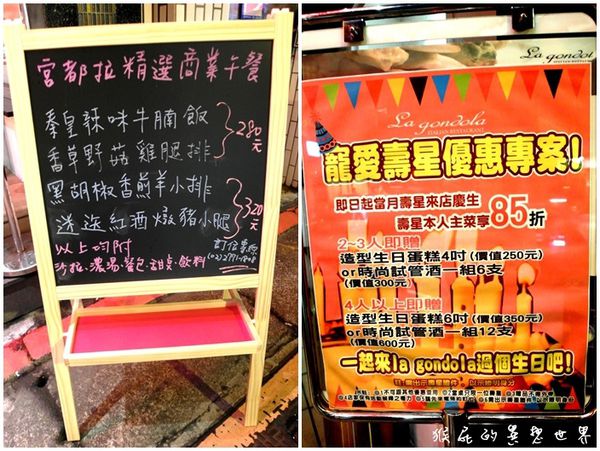 宮都拉精選商業午餐
秦皇辣味牛腩飯
香草野菇雞腿排
280元
黑胡椒香煎羊小排
迷迭紅酒燉豬小腿
320元
以上均附
沙拉.濃湯.餐包.甜点.飲料
La gondola
La gondola
ITALIAN RESTAURANT
寵愛壽星優惠專案!
即日起當月壽星來店慶生
壽星本人主菜享85折
2~3人即贈
造型生日蛋糕4吋(價值250元)
or時尚試管酒一組6支
(價值300元)
4人以上即贈
造型生日蛋糕6吋(價值350元)
or時尚試管酒一組12支
(價值600元)
一起來la gondola過個生日吧!
猴屁的異想世界